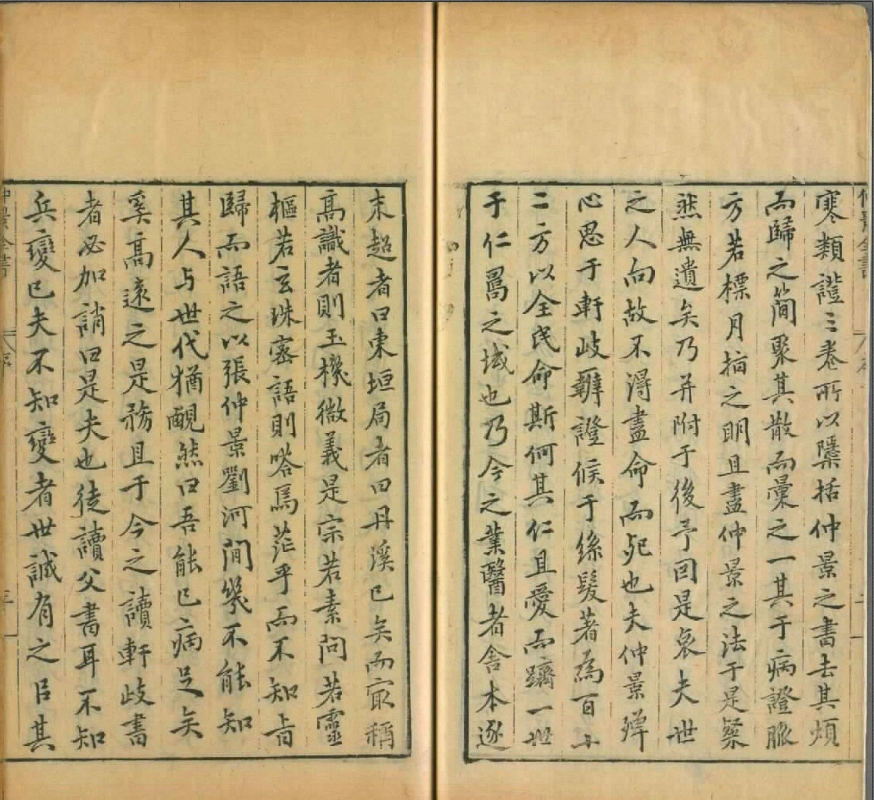 寒類證三卷所以檃括仲景之書去其煩
而歸之簡聚其散而彙之一其于病證脈
方若標月指之明且盡仲景之法于是粲
然無遺矣乃并附于後予因是哀夫世
之人向故不得盡命而死也夫仲景殫
心思于軒岐辨證候于絲髮著為百十
二方以全民命斯何其仁且愛而躋一世
于仁壽之域也乃今之業醫者舍本逐
末超者曰東垣局者曰丹溪已矣而最稱
高識者則玉機微義是宗若素問若靈
樞若玄珠密語則嗒焉茫乎而不知旨
歸而語之以張仲景劉河間幾不能知
其人与世代猶靦然曰吾能已病足矣
奚高遠之是務且于今之讀軒岐書
者必加誚曰是夫也徒讀父書耳不知
兵變已夫不知變者世誠有之㠯其
仲景全書
序